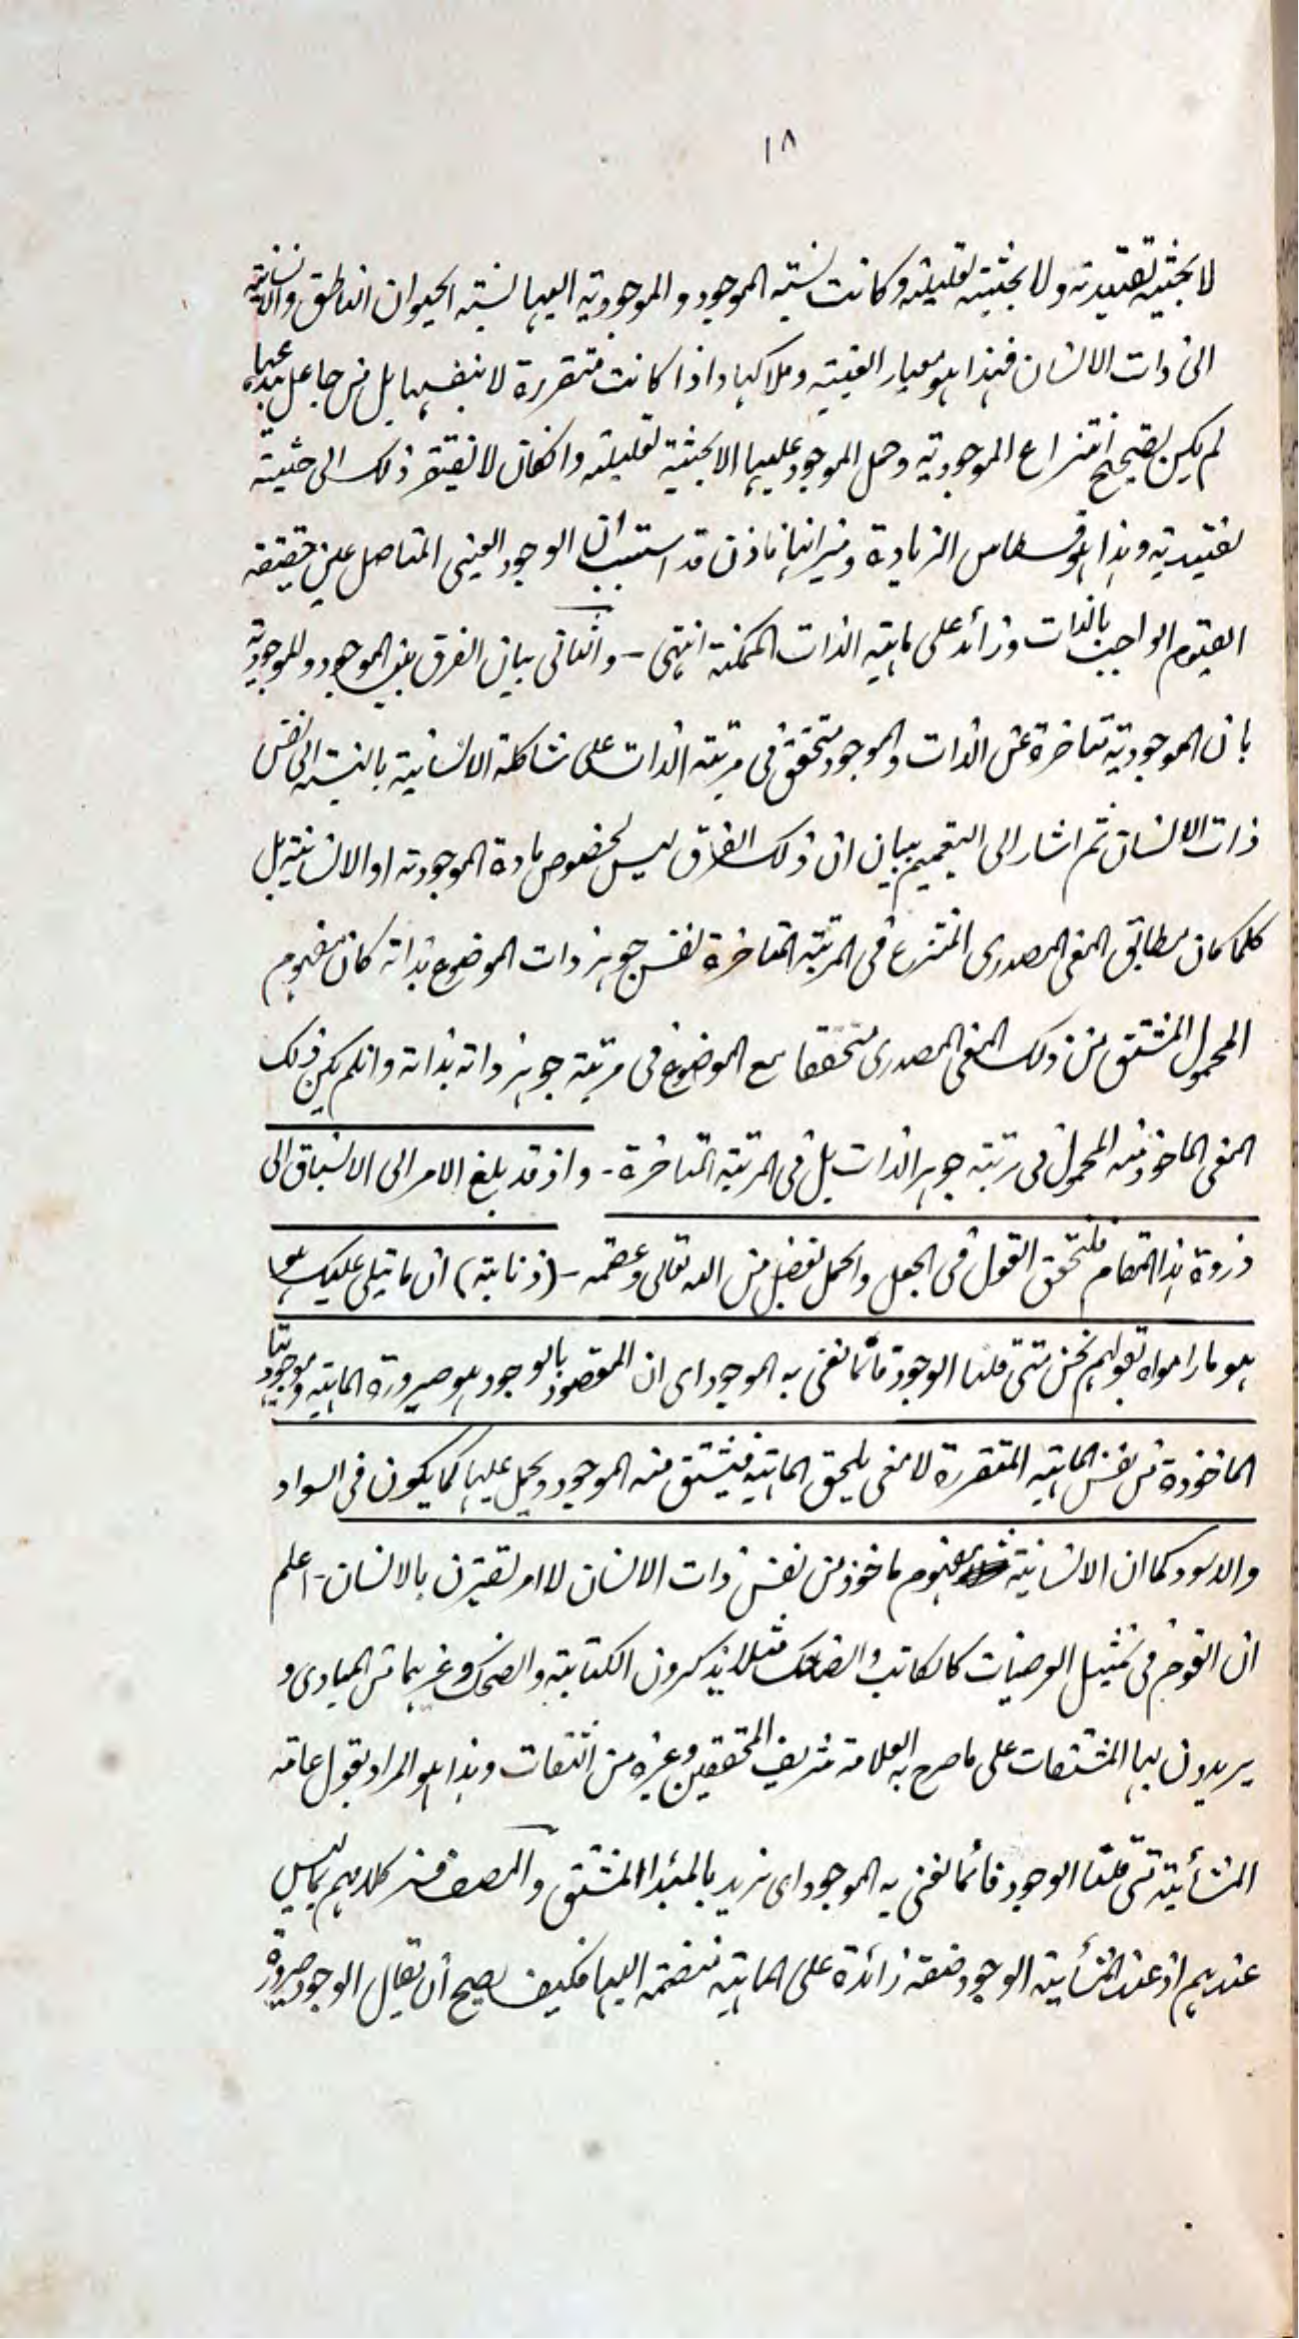 ١٨
لا بحيثية تقييدية ولا بحيثية تعليلية وكانت نسبة الموجود والموجودية اليها نسبة الحيوان الناطق والانسانية
الى ذات الانسان فهذا هو معيار العينية وملاكها واذا كانت متقررة لا بنفسها بل من جاعل مبدعها
لم يكن تصحيح انتزاع الموجودية وحمل الموجود عليها الا بحيثية تعليلية وانكان لا يفتقر ذلك الى حيثية
تقييدية وهذا هو قسطاس الزيادة وميزانها فاذن قد استتب ان الوجود العيني المتاصل عين حقيقة
القيوم الواجب بالذات وزائد على ماهية الذات الممكنة انتهى - والثاني بيان الفرق بين الموجود والموجودية
بان الموجودية متاخرة عن الذات والموجود متحقق في مرتبة الذات على شاكلة الانسانية بالنسبة الى نفس
ذات الانسان ثم اشار الى التعميم ببيان ان ذلك الفرق ليس لخصوص مادة الموجودية او الانسانية بل
كلما كان مطابق المعنى المصدري المنتزع في المرتبة المتاخرة نفس جوهر ذات الموضوع بذاته كان مفهوم
المحمول المشتق من ذلك المعنى المصدري متحققا مع الموضوع في مرتبة جوهر ذاته بذاته وانلم يكن ذلك
المعنى الماخوذ منه المحمول في مرتبة جوهر الذات بل في المرتبة المتاخرة - واذ قد بلغ الامر الى الانسياق الى
ذروة هذا المقام فلنحقق القول في الجعل والحمل بفضل من الله تعالى وعصمه - (ذنابة) ان ما تيلى عليك هو
هو ما راموا بقولهم نحن متى قلنا الوجود فانما نعني به الموجود اى ان المقصود بالوجود هو صيرورة الماهية وموجوديتها
الماخوذة من نفس الماهية المتقررة لا معنى يلحق الماهية فيشتق منه الموجود ويحمل عليها كما يكون في السواد
والاسود كما ان الانسانية مفهوم ماخوذ من نفس ذات الانسان لا امر يقترن بالانسان - اعلم
ان القوم في تمثيل العرضيات كالكاتب والضاحك مثلا يذكرون الكتابة والضحك وغيرهما من المبادى و
يريدون بها المشتقات على ما صرح به العلامة شريف المحققين وغيره من الثقات وهذا هو المراد بقول عامة
المشائية متى قلنا الوجود فانما نعني به الموجود اى نريد بالمبدا المشتق والمصنف فسر كلامهم بما ليس
عندهم اذ عند المشائية الوجود صفة زائدة على الماهية منضمة اليها فكيف يصح ان يقال الوجود صيرورة